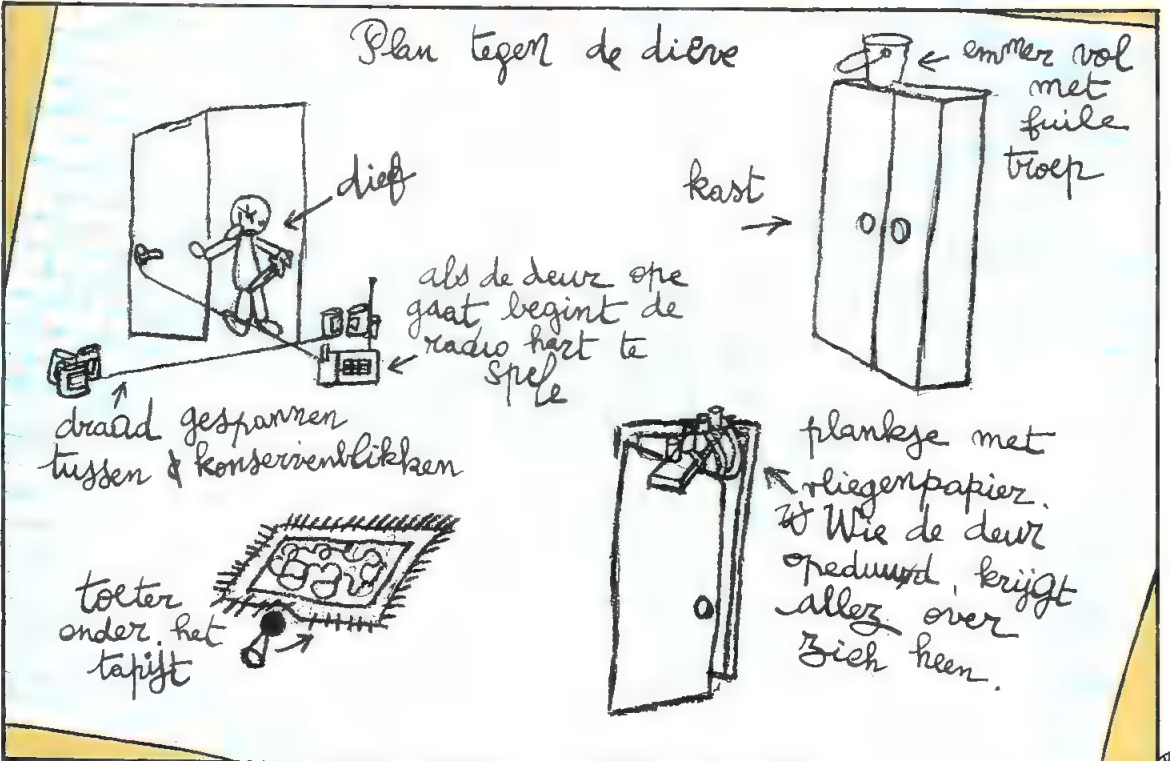 Plan tegen de diève
emmer vol
met
fuile
troep
kast
dief
als de deur ope
gaat begint de
radio hart te
spele
draad gespannen
tussen konservenblikken
plankje met
vliegenpapier.
Wie de deur
opeduurd, krijgt
allez over
zich heen.
toeter
onder het
tapijt